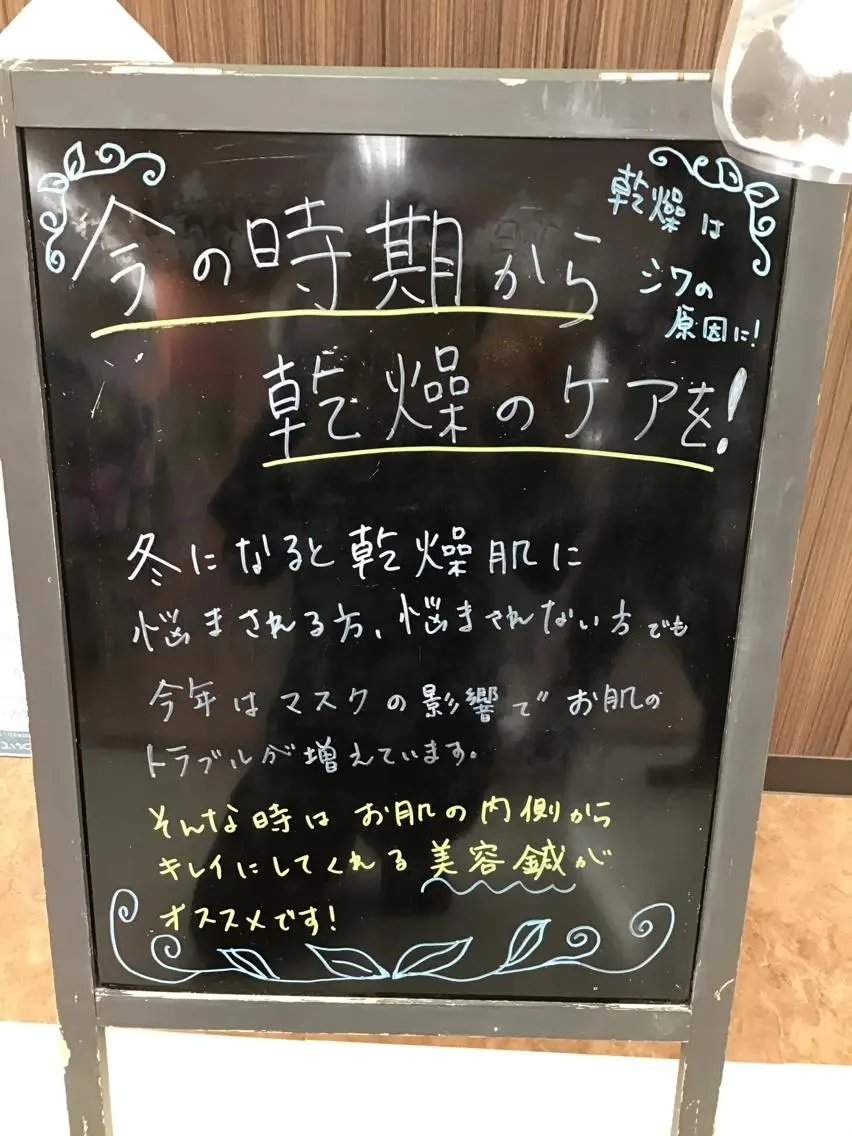 今の時期から
乾燥は
シワの
原因に!
乾燥のケアを!
冬になると乾燥肌に
悩まされる方、悩まされない方でも
今年はマスクの影響でお肌の
トラブルが増えています。
そんな時はお肌の内側から
キレイにしてくれる美容鍼が
オススメです!